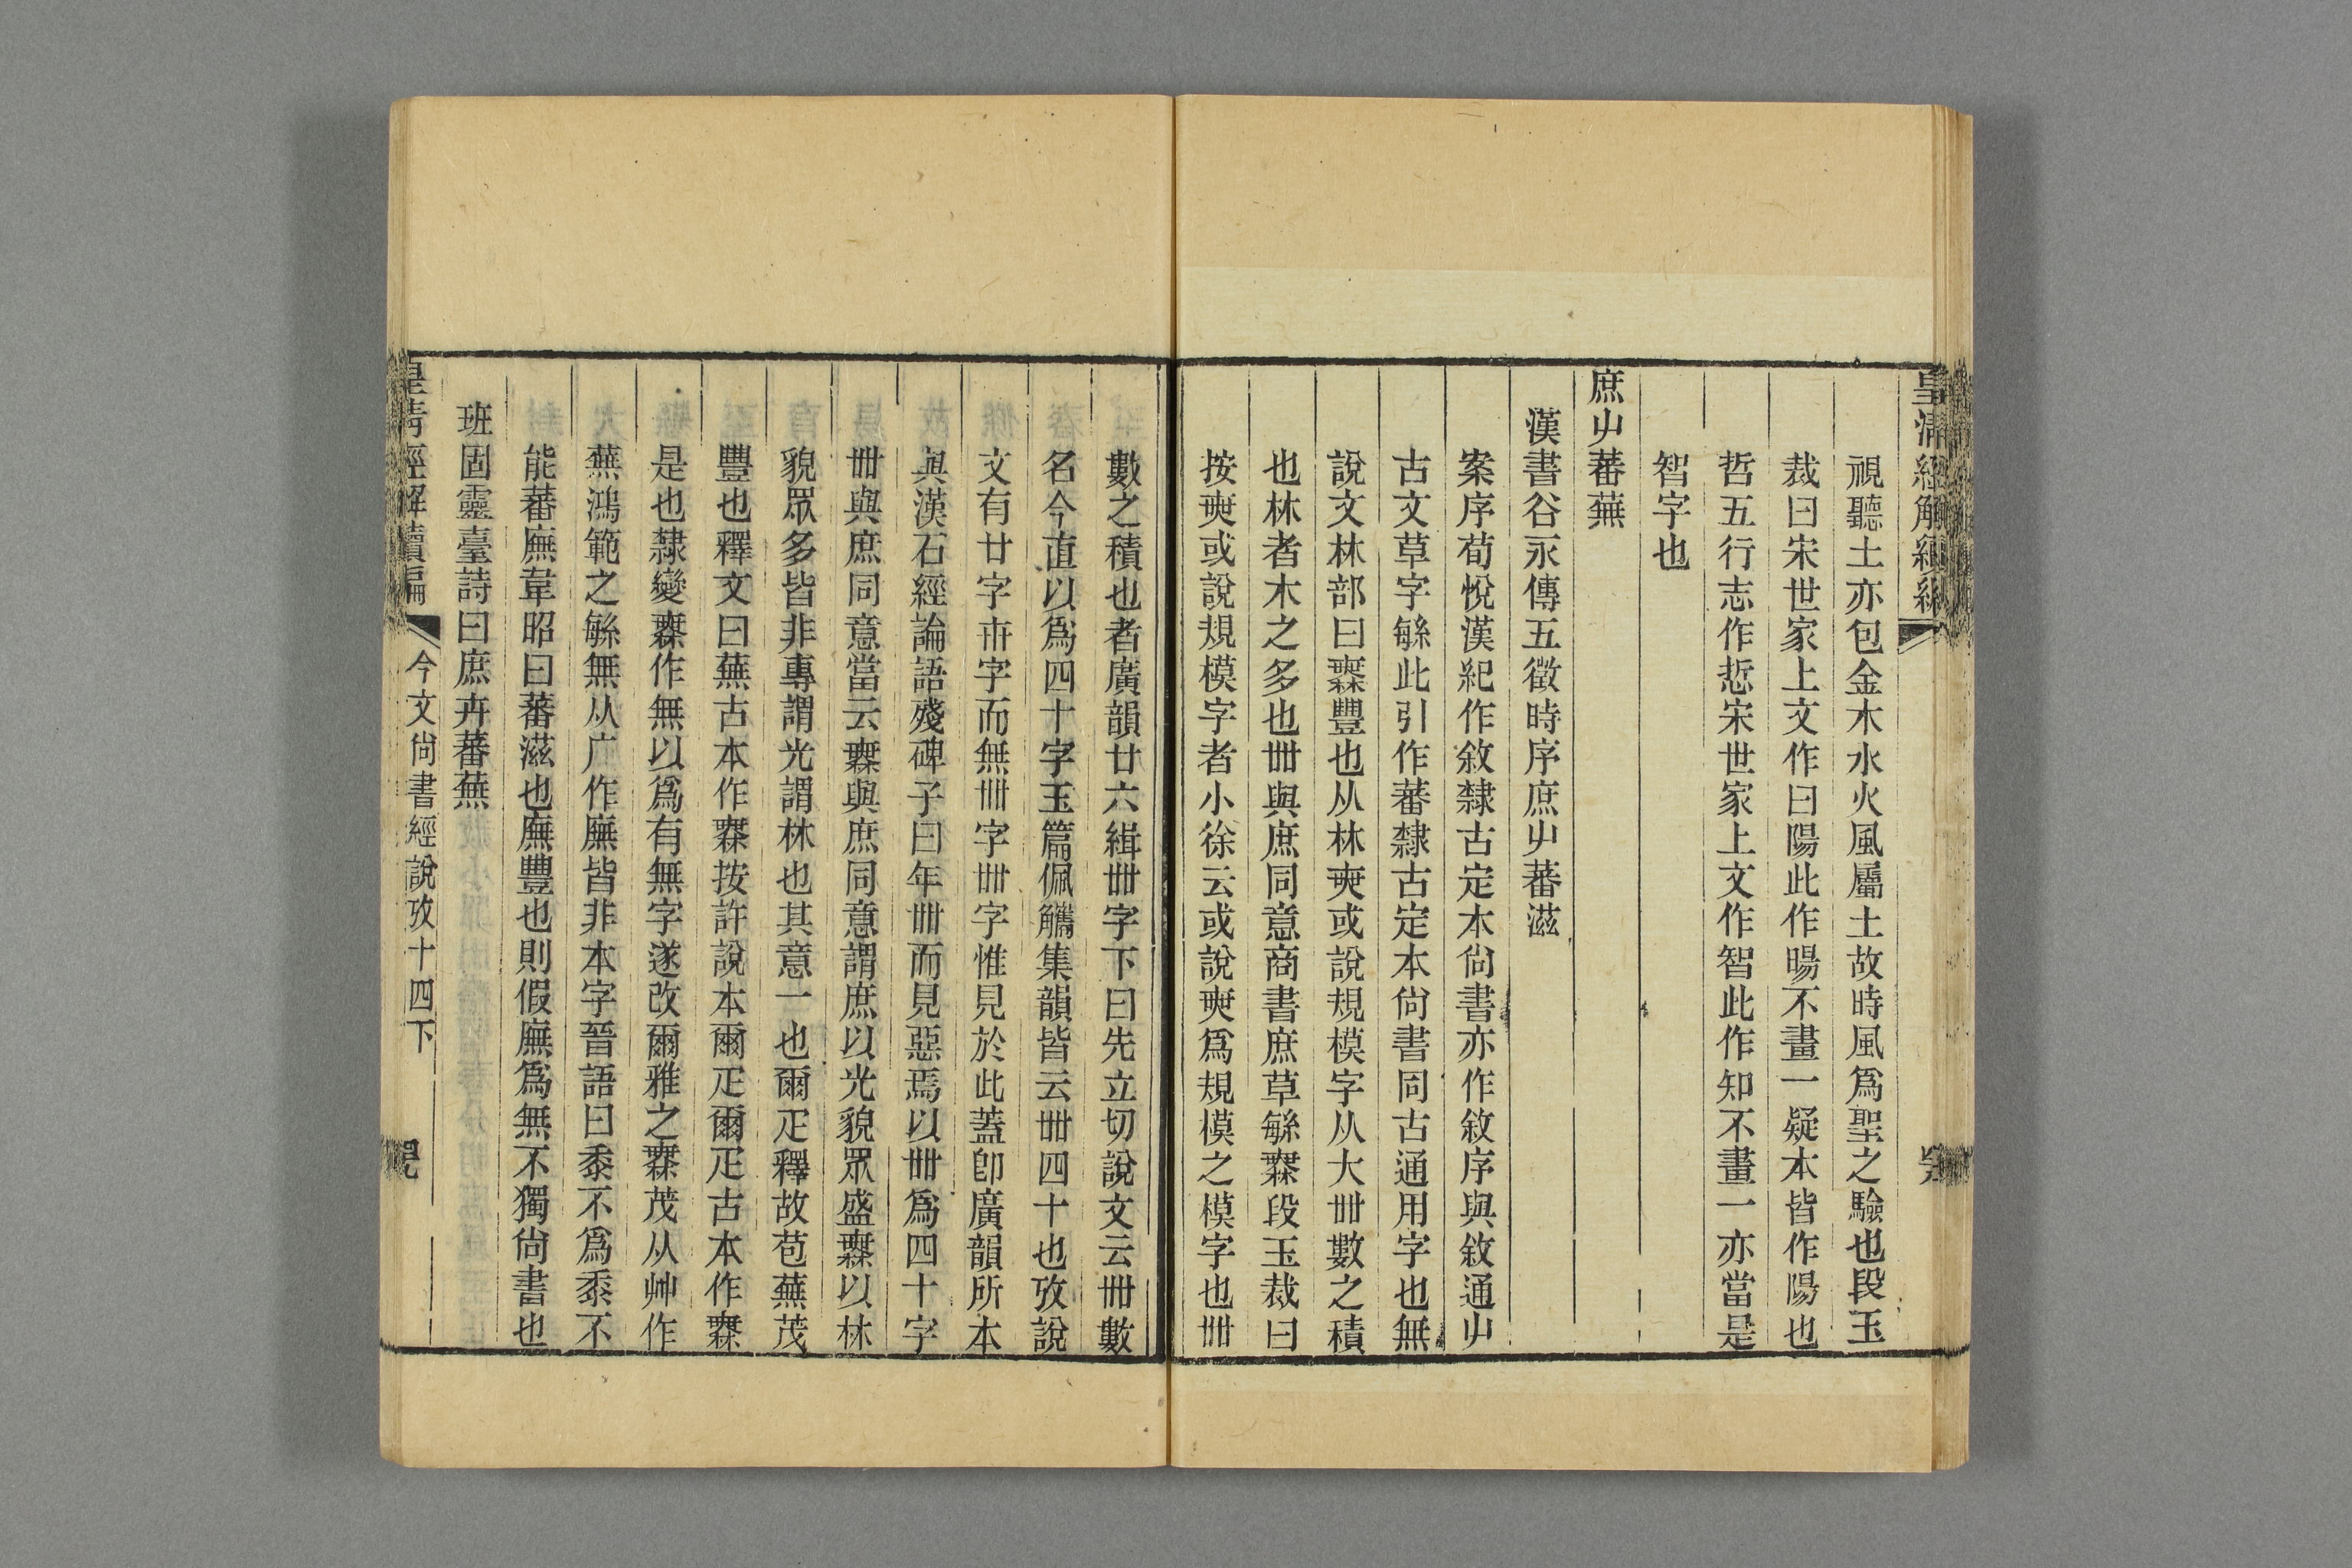 皇清經解續編
視聽土亦包金木水火風屬土故時風爲聖之驗也段玉
裁曰宋世家上文作曰陽此作暘不畫一疑本皆作陽也
哲五行志作悊宋世家上文作智此作知不畫一亦當是
智字也
庶屮蕃蕪
漢書谷永傳五徵時序庶屮蕃滋
案序荀悅漢紀作敘隸古定本尙書亦作敘序與敘通屮
古文草字緐此引作蕃隸古定本尙書同古通用字也無
說文林部曰霖豐也从林奭或說規模字从大卌數之積
也林者木之多也卌與庶同意商書庶草緐𣞤段玉裁曰
按𡘲或說規模字者小徐云或說𡘲爲規模之模字也卌
數之積也者廣韻廿六緝卌字下曰先立切說文云卌數
名今直以爲四十字玉篇佩觿集韻皆云卌四十也攷說
文有廿字卅字而無卌字卌字惟見於此蓋卽廣韻所本
與漢石經論語殘碑子曰年卌而見惡焉以卌爲四十字
卌與庶同意當云𣞤與庶同意謂庶以光貌眾盛𣞤以林
貌眾多皆非專謂光謂林也其意一也爾疋釋故苞蕪茂
豐也釋文曰蕪古本作𣞤按許說本爾疋爾疋古本作𣞤
是也隸變𣞤作無以爲有無字遂改爾雅之𣞤茂从艸作
蕪鴻範之緐無从广作廡皆非本字晉語曰黍不爲黍不
能蕃廡韋昭曰蕃滋也廡豐也則假廡爲無不獨尙書也
班固靈臺詩曰庶卉蕃蕪
皇清經解續編 今文尙書經說攷十四下